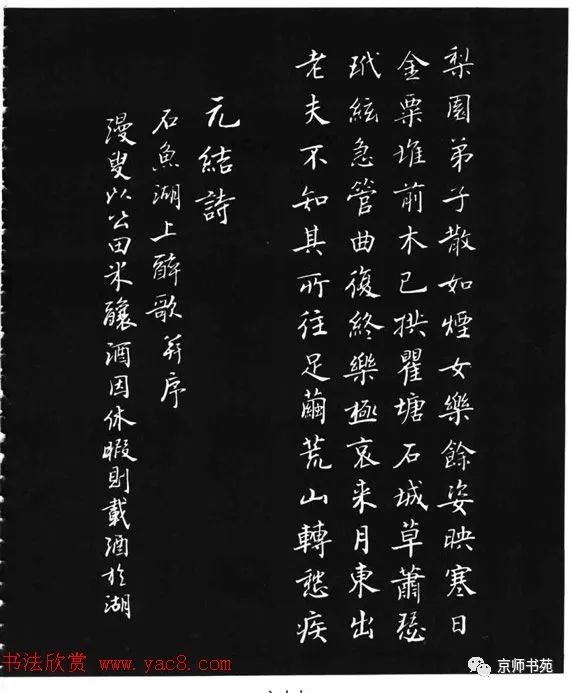 梨園弟子散如煙女樂餘姿映寒日
金粟堆前木已拱瞿塘石城草蕭瑟
玳絃急管曲復終樂極哀来月東出
老夫不知其所往足繭荒山轉愁疾
元結詩
石魚湖上醉歌并序
漫叟以公田米釀酒因休暇則載酒於湖
书法欣赏 www.yac8.com
京师书苑